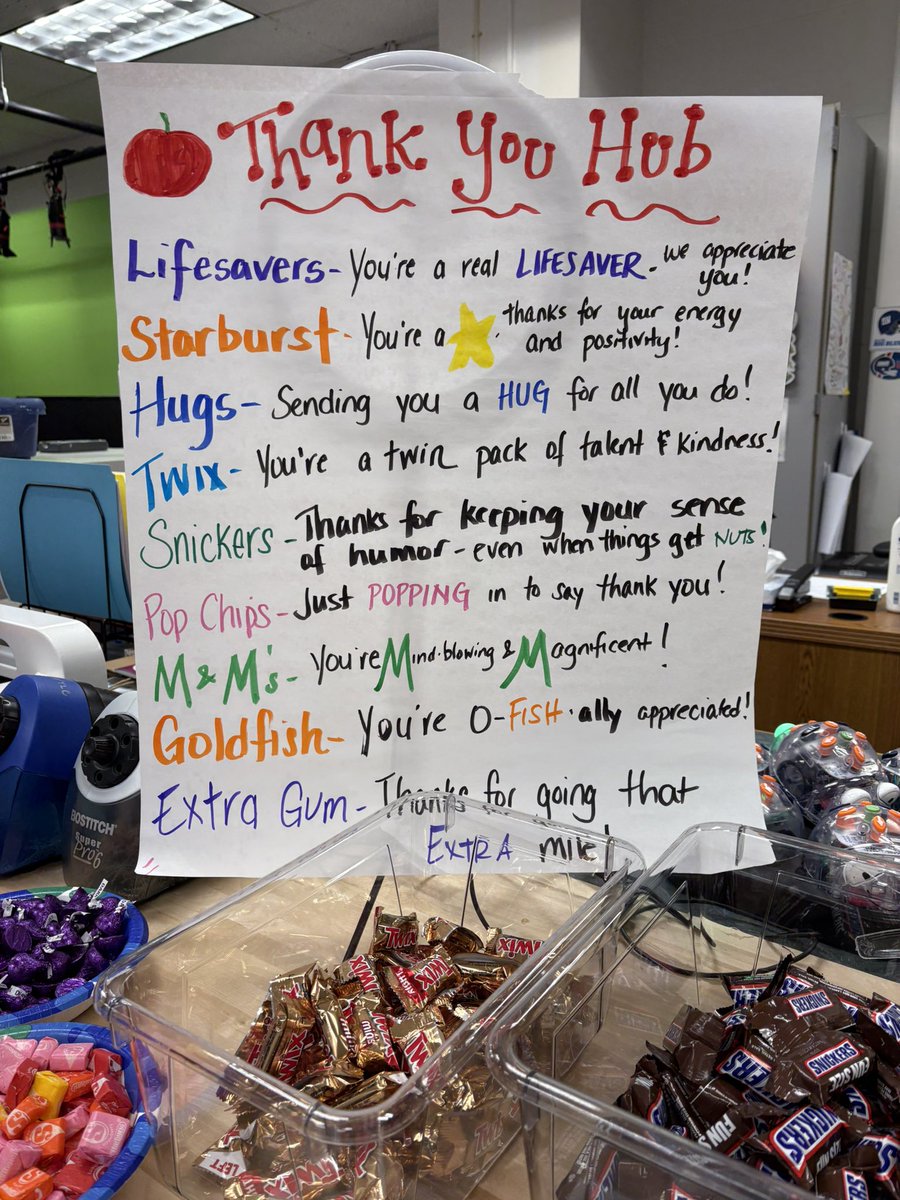 Thank You Hub
Lifesavers- You're a real LIFESAVER. we appreciate
you!
Starburst- You're a . thanks for your energy
and positivity!
Hugs- Sending you a HUG for all you do!
Twix- You're a twin pack of talent & kindness!
Snickers - Thanks for keeping your sense
of humor - even when things get NUTS!
Pop Chips- Just POPPING in to say thank you!
M & M's- You're Mind-blowing & Magnificent!
Goldfish- You're O-FISH-ally appreciated!
Extra Gum- Thanks for going that
EXTRA mile!
BOSTITCH
Super
Pro 6
TWIX
TWIX
TWIX
TWIX
TWIX
LEFT
TWIX
SNICKERS
SNICKERS
SNICKERS
SNICKERS
FUN SIZE